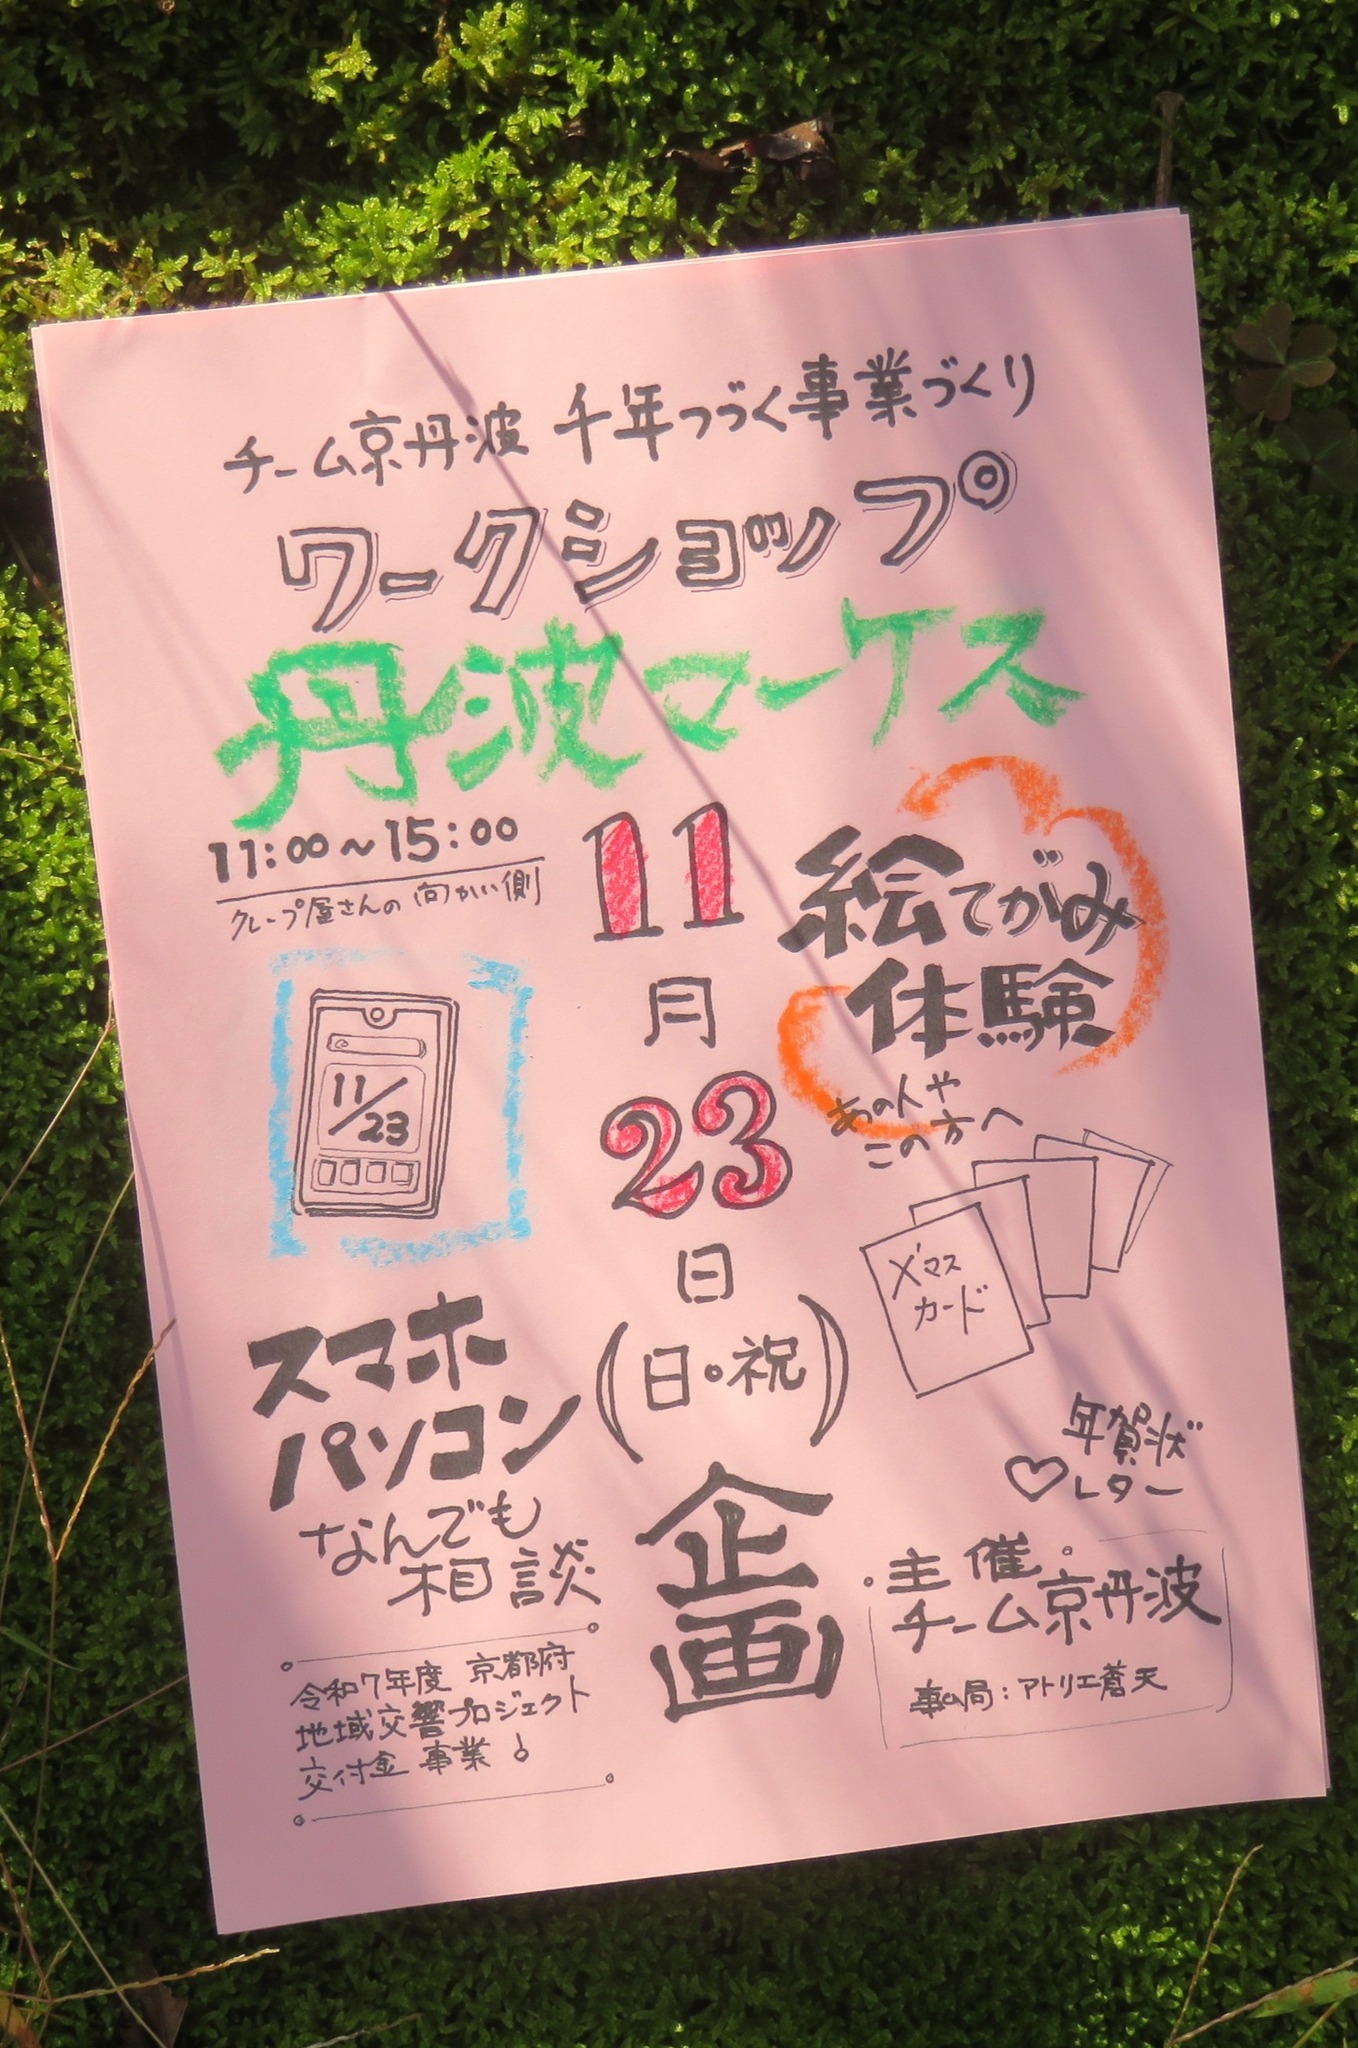 チーム京丹波 千年つづく事業づくり
ワークショップ
丹波マーケス
11:00～15:00
クレープ屋さんの向かい側
11
月
23
日
(日・祝)
企
画
絵てがみ
体験
あの人や
この方へ
X'マス
カード
年賀状
♡レター
11/23
スマホ
パソコン
なんでも
相談
令和7年度 京都府
地域交響プロジェクト
交付金 事業
主催
チーム京丹波
事ム局:アトリエ蒼天